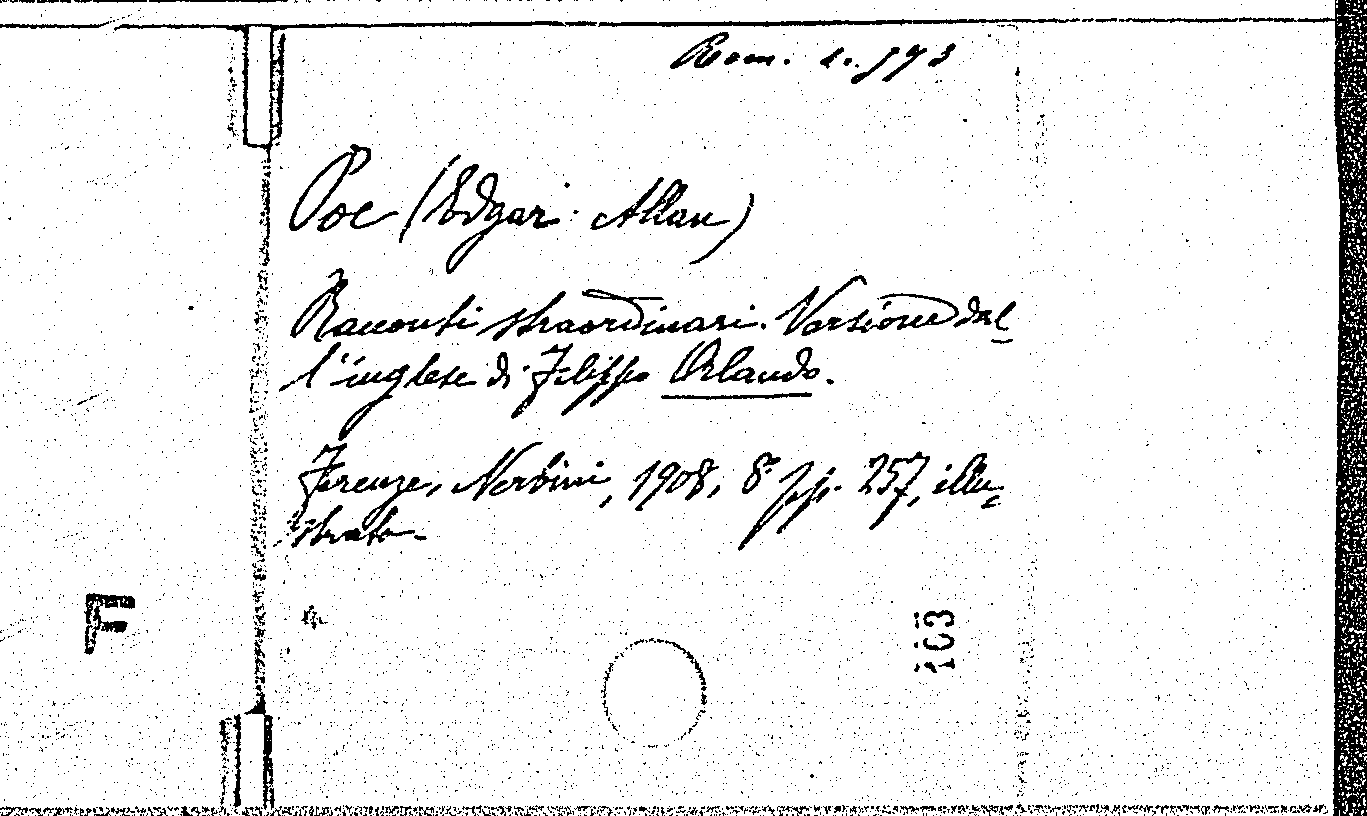 Rom. 2. 993
Poe (Edgar Allan)
Racconti straordinari. Versione dal
l'inglese di Filippo Orlando.
Firenze, Nerbini, 1908, 8° pp. 257, illu-
strato.
F
103